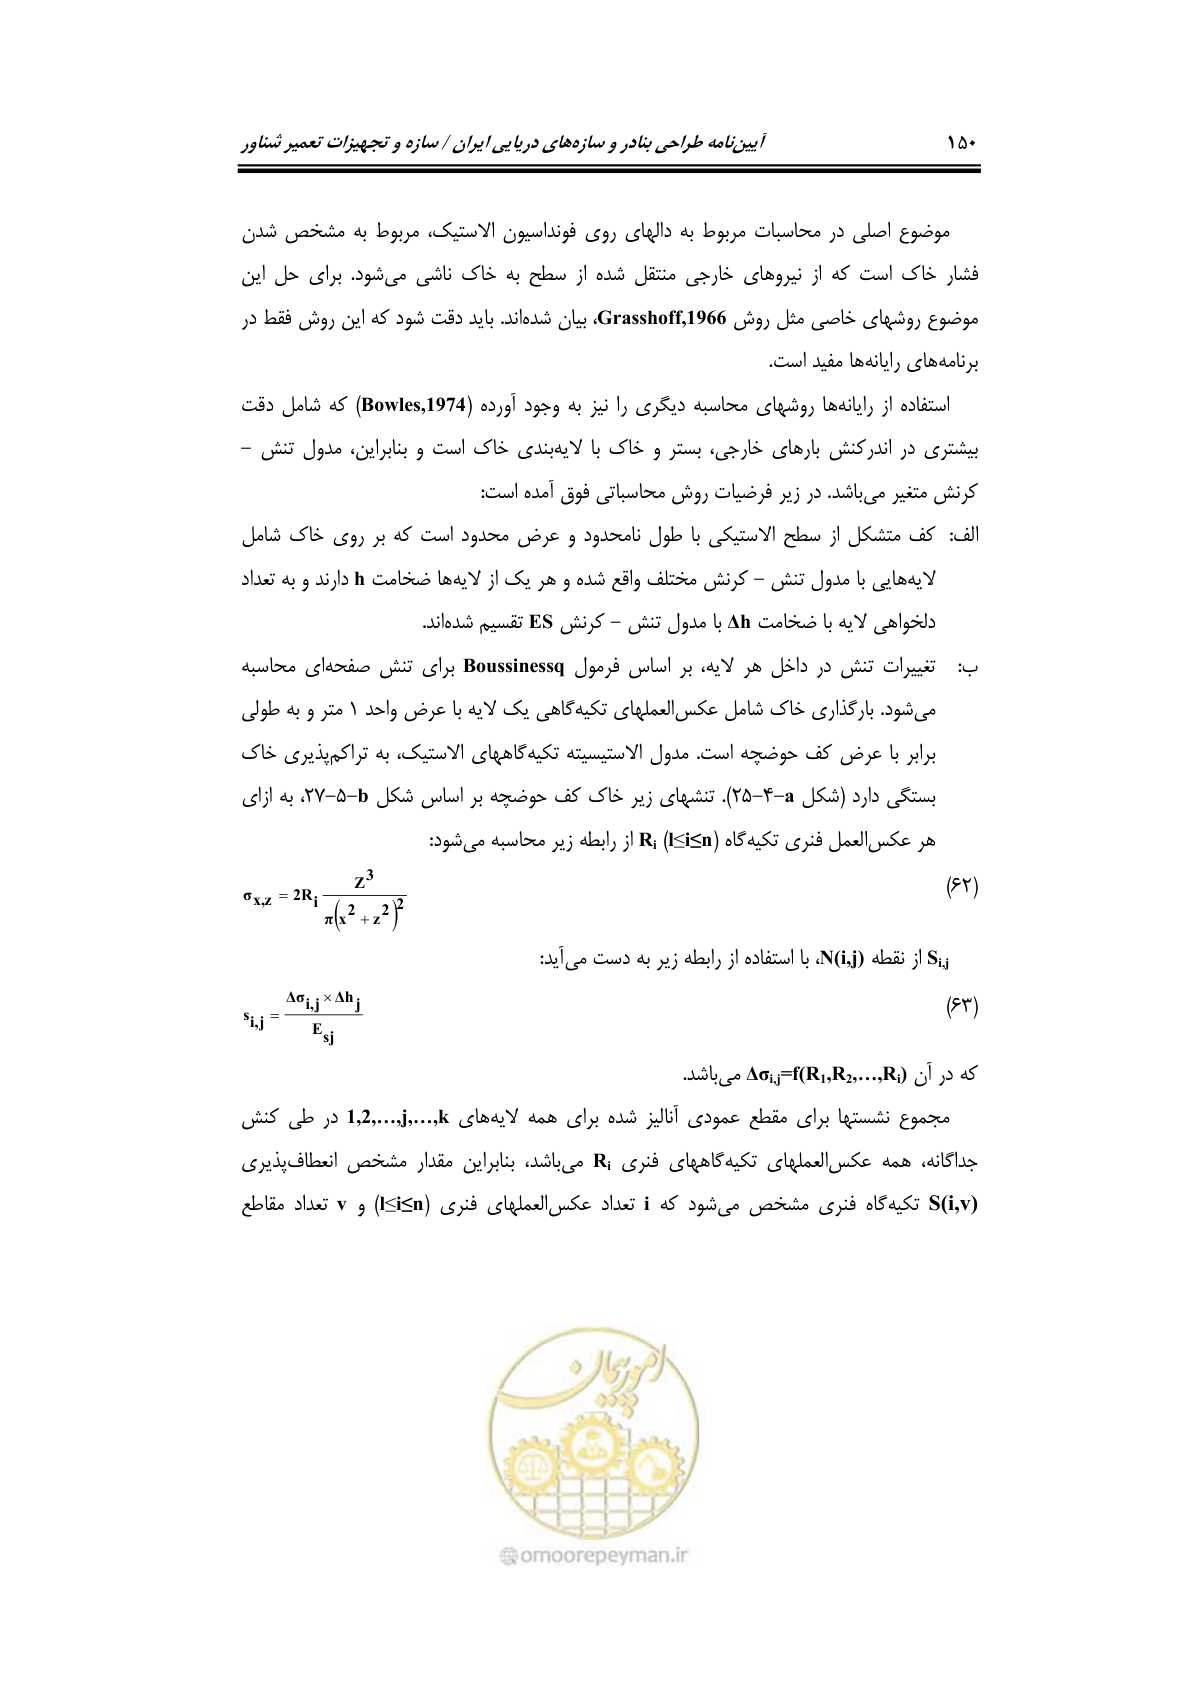 ۱۵۰ آیین‌نامه طراحی بنادر و سازه‌های دریایی ایران / سازه و تجهیزات تعمیر شناور
موضوع اصلی در محاسبات مربوط به دالهای روی فونداسیون الاستیک، مربوط به مشخص شدن
فشار خاک است که از نیروهای خارجی منتقل شده از سطح به خاک ناشی می‌شود. برای حل این
موضوع روشهای خاصی مثل روش Grasshoff,1966، بیان شده‌اند. باید دقت شود که این روش فقط در
برنامه‌های رایانه‌ها مفید است.
استفاده از رایانه‌ها روشهای محاسبه دیگری را نیز به وجود آورده (Bowles,1974) که شامل دقت
بیشتری در اندرکنش بارهای خارجی، بستر و خاک با لایه‌بندی خاک است و بنابراین، مدول تنش –
کرنش متغیر می‌باشد. در زیر فرضیات روش محاسباتی فوق آمده است:
الف: کف متشکل از سطح الاستیکی با طول نامحدود و عرض محدود است که بر روی خاک شامل
لایه‌هایی با مدول تنش – کرنش مختلف واقع شده و هر یک از لایه‌ها ضخامت h دارند و به تعداد
دلخواهی لایه با ضخامت Δh با مدول تنش – کرنش ES تقسیم شده‌اند.
ب: تغییرات تنش در داخل هر لایه، بر اساس فرمول Boussinessq برای تنش صفحه‌ای محاسبه
می‌شود. بارگذاری خاک شامل عکس‌العملهای تکیه‌گاهی یک لایه با عرض واحد ۱ متر و به طولی
برابر با عرض کف حوضچه است. مدول الاستیسیته تکیه‌گاههای الاستیک، به تراکم‌پذیری خاک
بستگی دارد (شکل ۲۵–۴–a). تنشهای زیر خاک کف حوضچه بر اساس شکل ۲۷–۵–b، به ازای
هر عکس‌العمل فنری تکیه‌گاه Ri (l≤i≤n) از رابطه زیر محاسبه می‌شود:
(۶۲) σx,z = 2Ri Z^3 / π(x^2 + z^2)^2
Si,j از نقطه N(i,j)، با استفاده از رابطه زیر به دست می‌آید:
(۶۳) si,j = Δσi,j × Δhj / Esj
که در آن Δσi,j=f(R1,R2,…,Ri) می‌باشد.
مجموع نشستها برای مقطع عمودی آنالیز شده برای همه لایه‌های 1,2,…,j,…,k در طی کنش
جداگانه، همه عکس‌العملهای تکیه‌گاههای فنری Ri می‌باشد، بنابراین مقدار مشخص انعطاف‌پذیری
S(i,v) تکیه‌گاه فنری مشخص می‌شود که i تعداد عکس‌العملهای فنری (l≤i≤n) و v تعداد مقاطع
امور پیمان
@omoorepeyman.ir